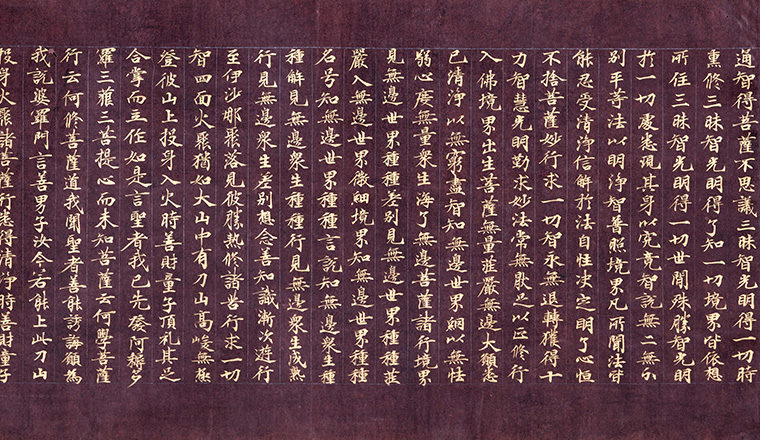 通智得菩薩不思議三昧智光明得一切時
熏修三昧智光明得了知一切境界皆依想
所住三昧智光明得一切世間殊勝智光明
於一切處悉現其身以究竟智說無二無分
別平等法以明淨智普照境界凡所聞法皆
能忍受清淨信解於法自性決定明了心恒
不捨菩薩妙行求一切智永無退轉獲得十
力智慧光明勤求妙法常無猒足以正修行
入佛境界出生菩薩無量莊嚴無邊大願悉
已清淨以無窮盡智知無邊世界網以無怯
弱心度無量衆生海了無邊菩薩諸行境界
見無邊世界種種差別見無邊世界種種莊
嚴入無邊世界微細境界知無邊世界種種
名号知無邊世界種種言說知無邊衆生種
種解見無邊衆生種種行見無邊衆生成熟
行見無邊衆生差別想念善知識漸次遊行
至伊沙那聚落見彼勝熱修諸苦行求一切
智四面火聚猶如大山中有刀山高峻無極
登彼山上投身入火時善財童子頂礼其足
合掌而立作如是言聖者我已先發阿耨多
羅三藐三菩提心而未知菩薩云何學菩薩
行云何修菩薩道我聞聖者善能誘誨願為
我說婆羅門言善男子汝今若能上此刀山
投身火聚諸菩薩行悉得清淨時善財童子